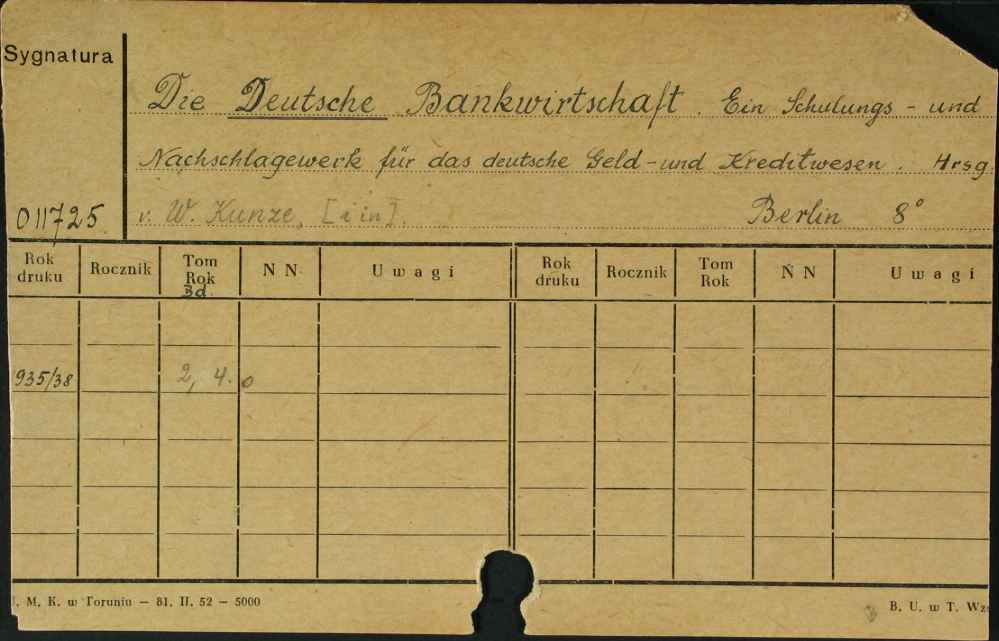 Sygnatura
Die Deutsche Bankwirtschaft. Ein Schulungs- und
Nachschlagewerk für das deutsche Geld- und Kreditwesen. Hrsg.
011725 v. W. Kunze, [i in]. Berlin 8°
Rok druku Rocznik Tom Rok Bd. N N Uwagi Rok druku Rocznik Tom Rok N N Uwagi
935/38 2, 4. 0
. M. K. w Toruniu – 81. II. 52 – 5000 B. U. w T. Wz